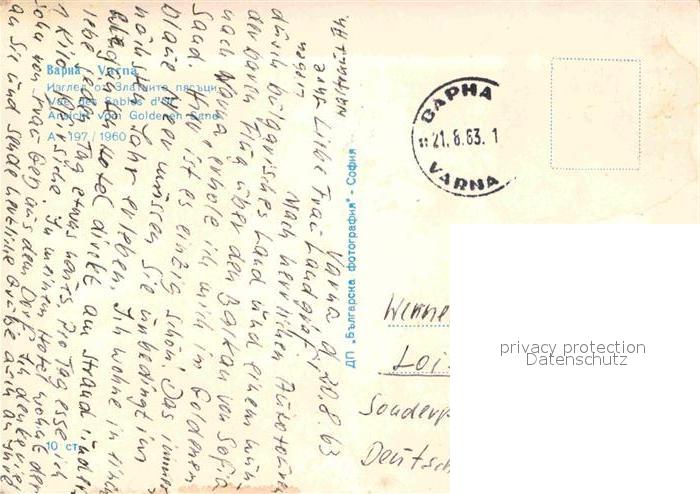 Варна - Varna
Изглед от Златните пясъци
Vue des Sables d'or
Ansicht vom Goldenen Sand
A - 197 / 1960
10 ст.
ДП „Българска фотография" - София
ВАРНА
21. 8. 63. 1
VARNA
Varna d, 20.8.63
Liebe Frau Landgraf,
Nach herrlichen Autotouren
durch bulgarisches Land und einem wun
derbaren Flug über den Balkan von Sofia
nach Varna, erhole ich mich im Goldenen
Sand. Hier ist es einzig schön. Das immer
blaue Meer müssen Sie unbedingt im
nächsten Jahr erleben. Ich wohne in einem
Hotel direkt am Strand und er
lebe jeden Tag etwas neues. Pro Tag esse ich
1 Kilo Pfirsiche. In meinem Hotel wohnt der
Sohn von Frau aus dem Dorf. Ich denke viel
an Sie und sende herzliche Grüße auch an Ihre
Werne
Loi
Sonder
Deutsch
privacy protection
Datenschutz